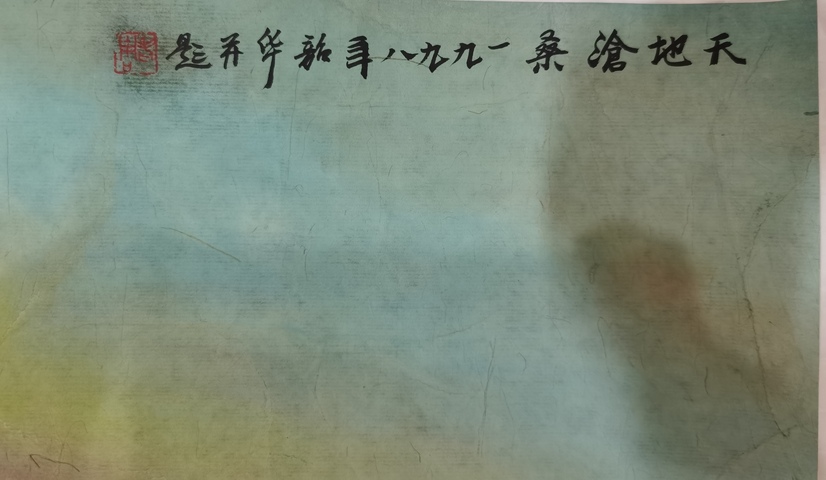 天地滄桑一九九八年韶华并题